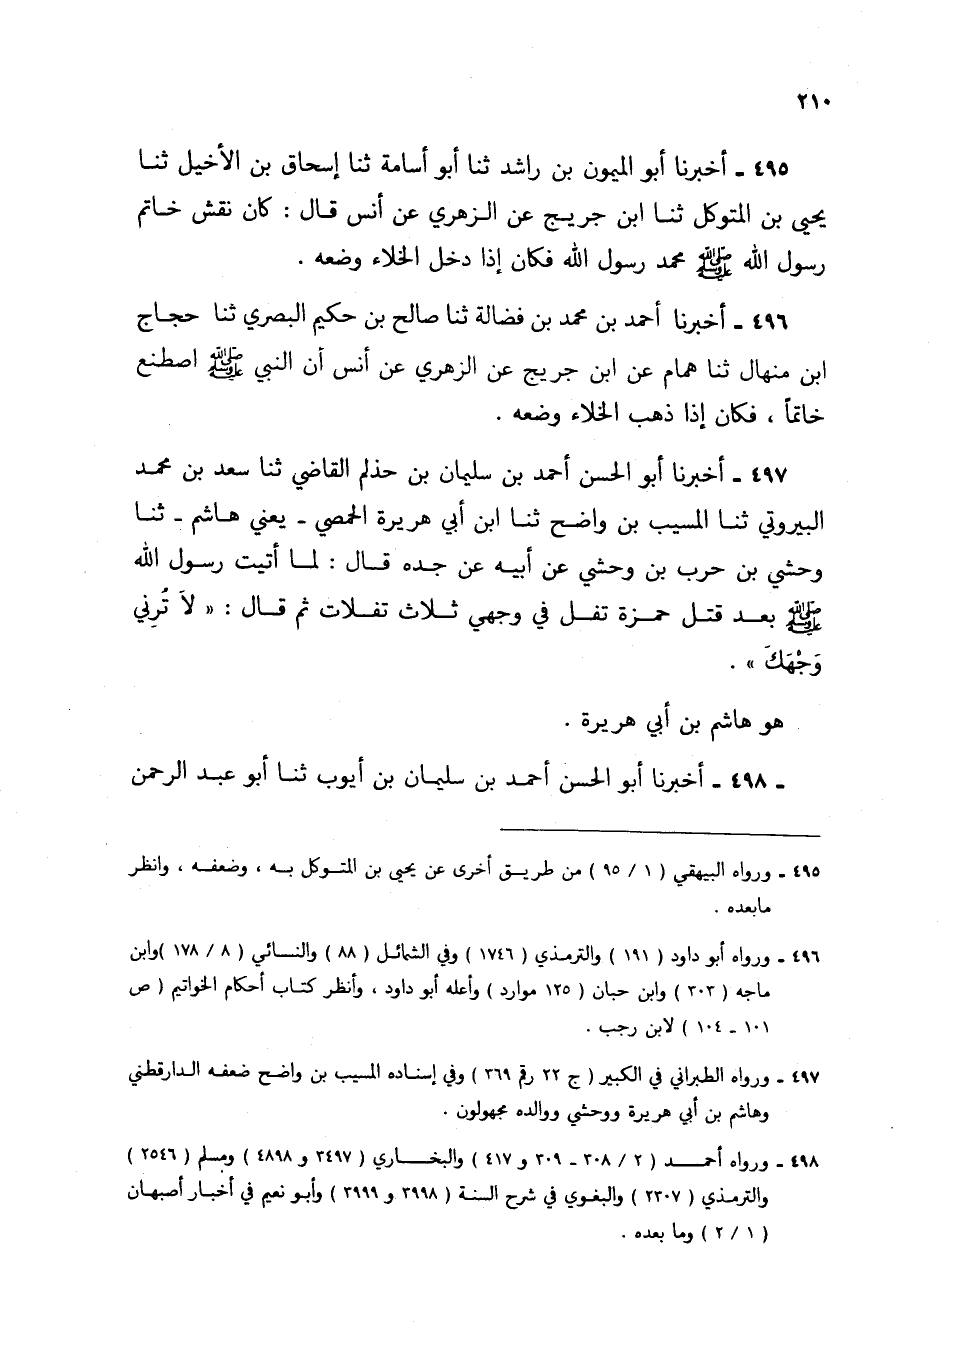 ٢١٠
٤٩٥ ـ أخبرنا أبو الميمون بن راشد ثنا أبو أسامة ثنا إسحاق بن الأخيل ثنا
يحيى بن المتوكل ثنا ابن جريج عن الزهري عن أنس قال : كان نقش خاتم
رسول الله ﷺ محمد رسول الله فكان إذا دخل الخلاء وضعه .
٤٩٦ ـ أخبرنا أحمد بن محمد بن فضالة ثنا صالح بن حكيم البصري ثنا حجاج
ابن منهال ثنا همام عن ابن جريج عن الزهري عن أنس أن النبي ﷺ اصطنع
خاتماً ، فكان إذا ذهب الخلاء وضعه .
٤٩٧ ـ أخبرنا أبو الحسن أحمد بن سليمان بن حذلم القاضي ثنا سعد بن محمد
البيروتي ثنا المسيب بن واضح ثنا ابن أبي هريرة الحمصي ـ يعني هاشم ـ ثنا
وحشي بن حرب بن وحشي عن أبيه عن جده قال : لما أتيت رسول الله
ﷺ بعد قتل حمزة تفل في وجهي ثلاث تفلات ثم قال : « لاَ تُرِني
وَجْهَكَ » .
هو هاشم بن أبي هريرة .
ـ ٤٩٨ ـ أخبرنا أبو الحسن أحمد بن سليمان بن أيوب ثنا أبو عبد الرحمن
٤٩٥ ـ ورواه البيهقي ( ١ / ٩٥ ) من طريق أخرى عن يحيى بن المتوكل به ، وضعفه ، وانظر
مابعده .
٤٩٦ ـ ورواه أبو داود ( ١٩١ ) والترمذي ( ١٧٤٦ ) وفي الشمائل ( ٨٨ ) والنسائي ( ٨ / ١٧٨ )وابن
ماجه ( ٣٠٣ ) وابن حبان ( ١٢٥ موارد ) وأعله أبو داود ، وأنظر كتاب أحكام الخواتيم ( ص
١٠١ ـ ١٠٤ ) لابن رجب .
٤٩٧ ـ ورواه الطبراني في الكبير ( ج ٢٢ رقم ٣٦٩ ) وفي إسناده المسيب بن واضح ضعفه الدارقطني
وهاشم بن أبي هريرة ووحشي ووالده مجهولون .
٤٩٨ ـ ورواه أحمد ( ٢ / ٣٠٨ ـ ٣٠٩ و ٤١٧ ) والبخاري ( ٣٤٩٧ و ٤٨٩٨ ) ومسلم ( ٢٥٤٦ )
والترمذي ( ٢٣٠٧ ) والبغوي في شرح السنة ( ٣٩٩٨ و ٣٩٩٩ ) وأبو نعيم في أخبار أصبهان
( ١ / ٢ ) وما بعده .